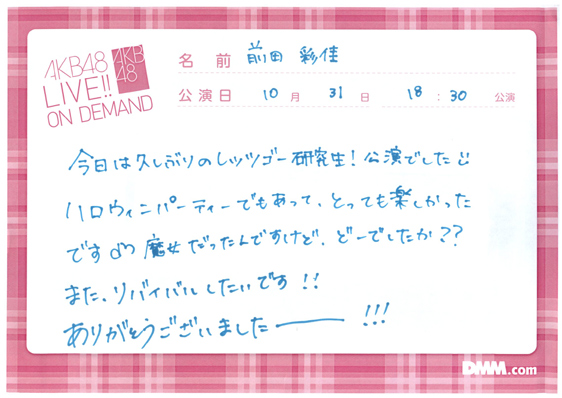 AKB48
LIVE!!
ON DEMAND
AKB
48
名前 前田 彩佳
公演日 10月 31日 18:30 公演
今日は久しぶりのレッツゴー研究生!公演でした
ハロウィンパーティーでもあって、とっても楽しかった
です 魔女だったんですけど、どーでしたか??
また、リバイバルしたいです!!
ありがとうございましたーーー!!!
DMM.com